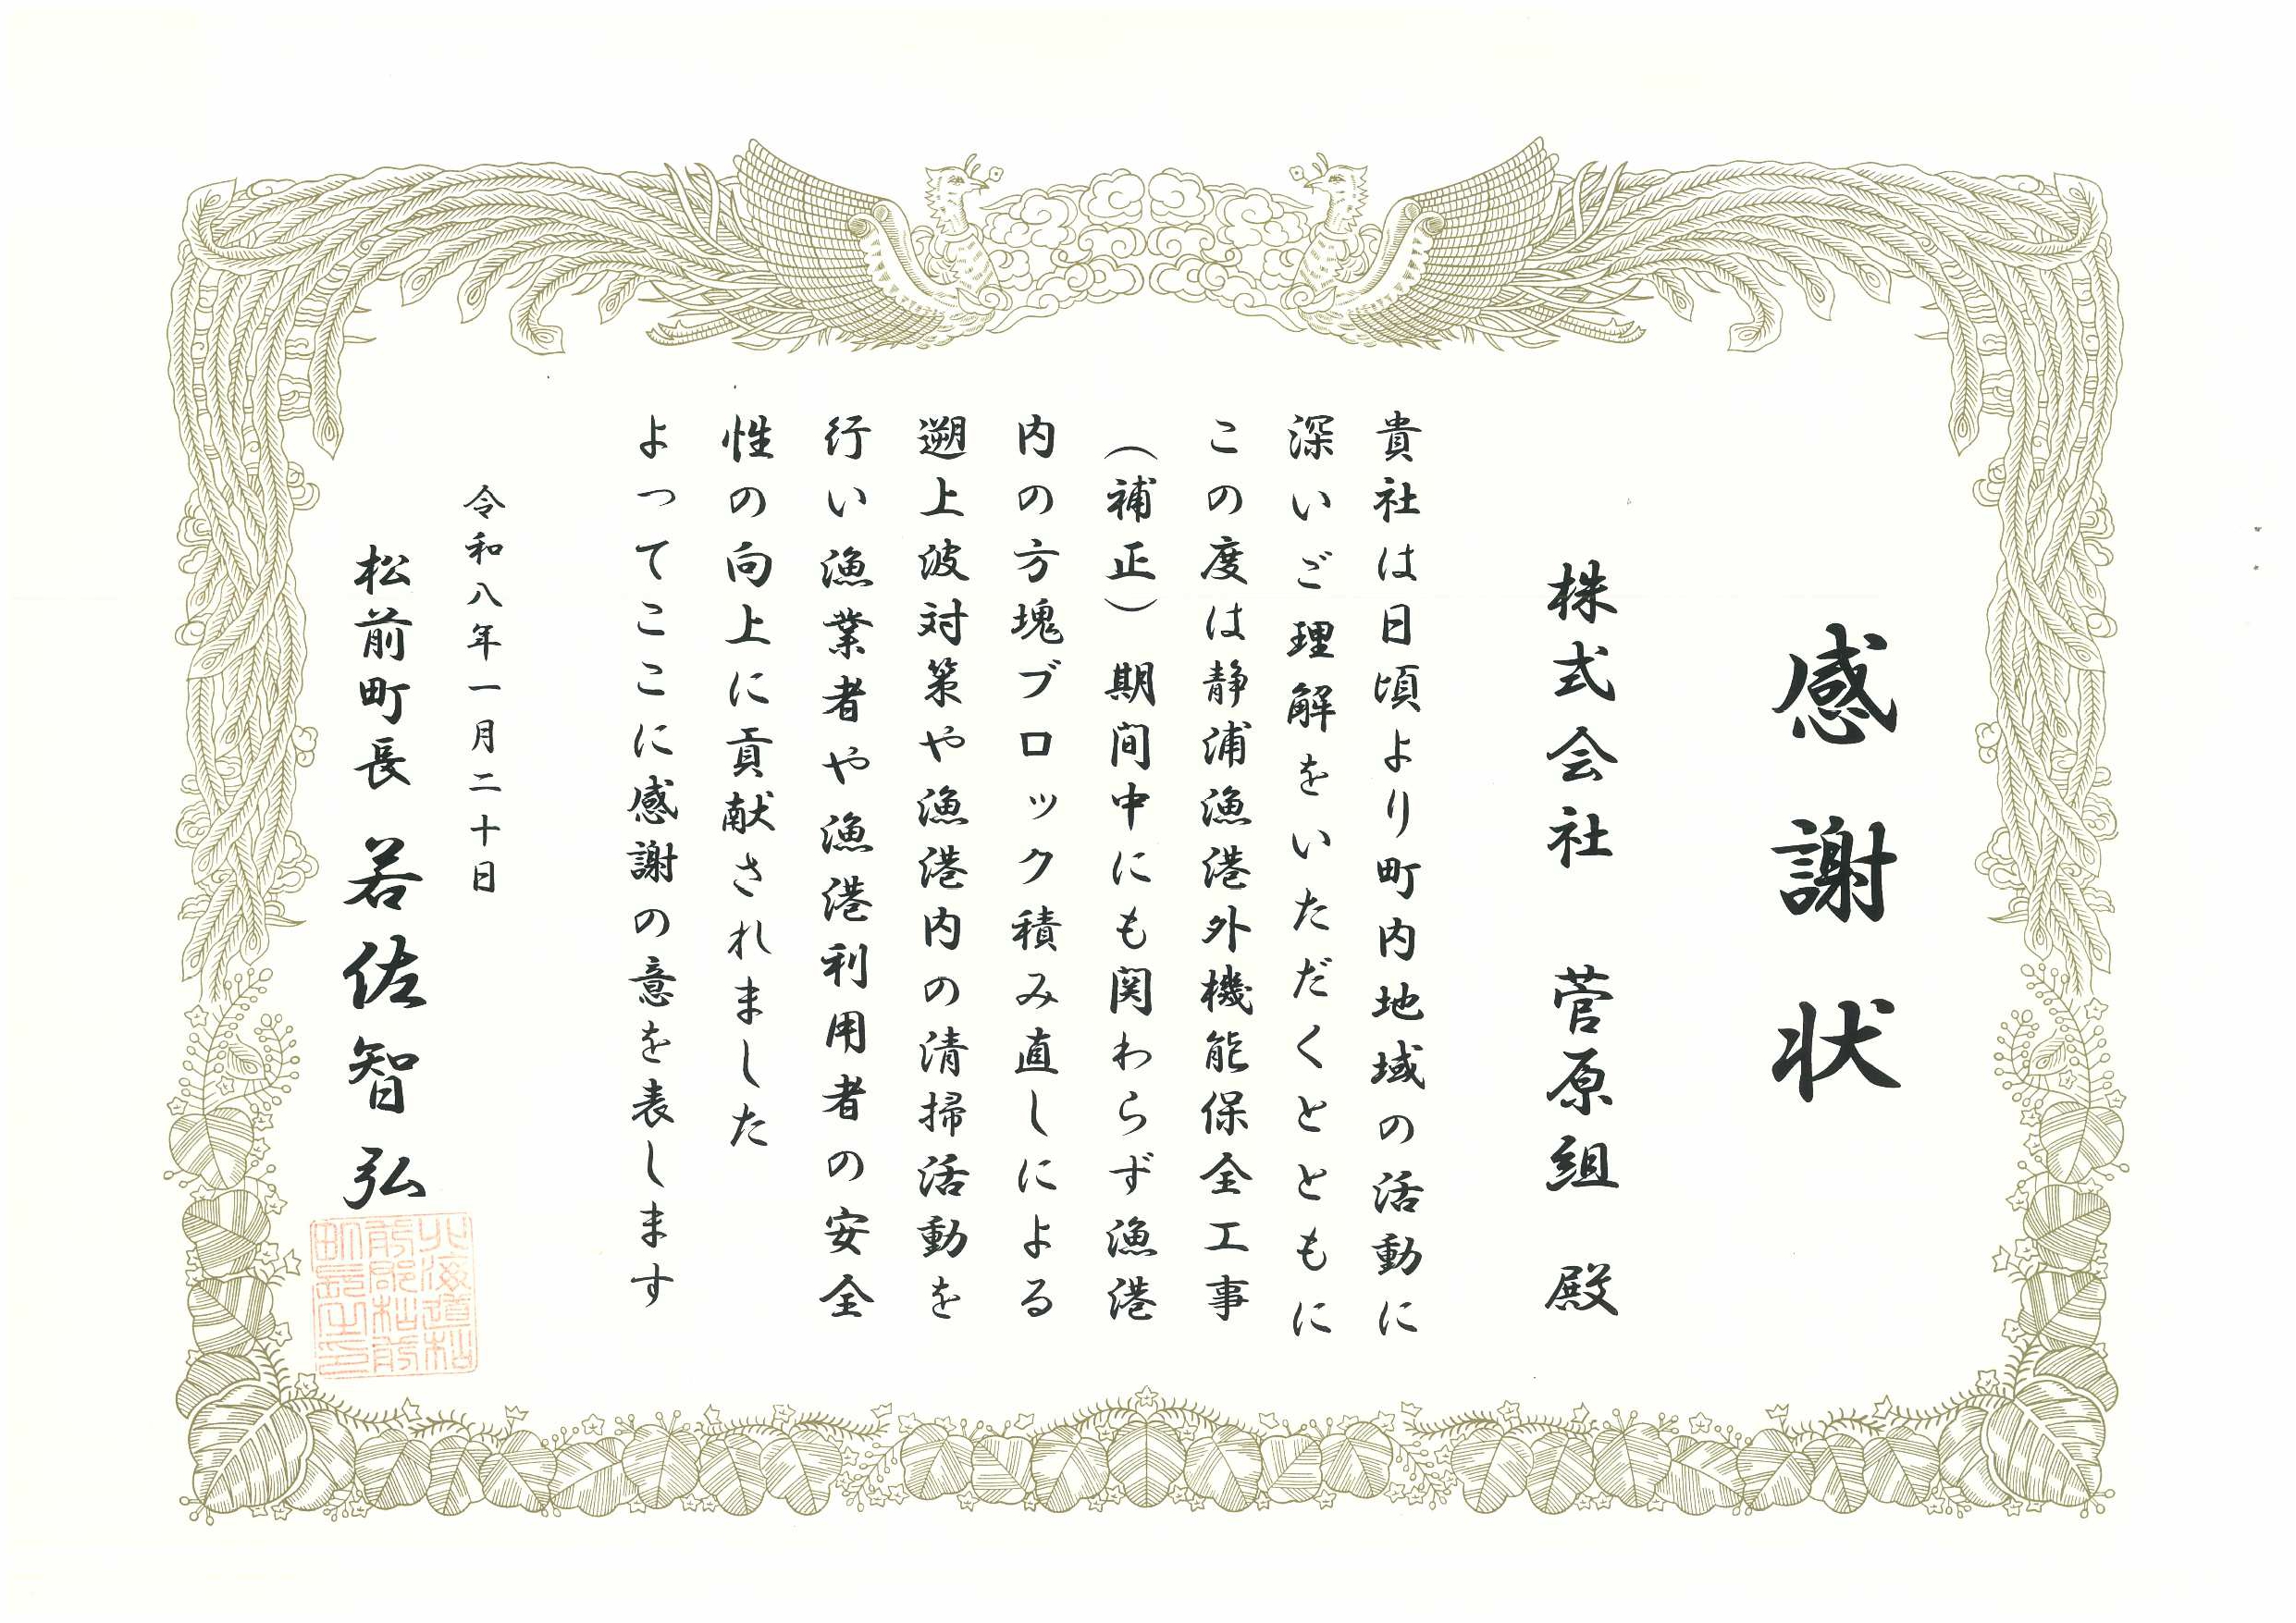 感謝状
株式会社 菅原組 殿
貴社は日頃より町内地域の活動に
深いご理解をいただくとともに
この度は静浦漁港外機能保全工事
(補正)期間中にも関わらず漁港
内の方塊ブロック積み直しによる
遡上波対策や漁港内の清掃活動を
行い漁業者や漁港利用者の安全
性の向上に貢献されました
よってここに感謝の意を表します
令和八年一月二十日
松前町長 若佐智弘
北海道松
前郡松前
町長之印